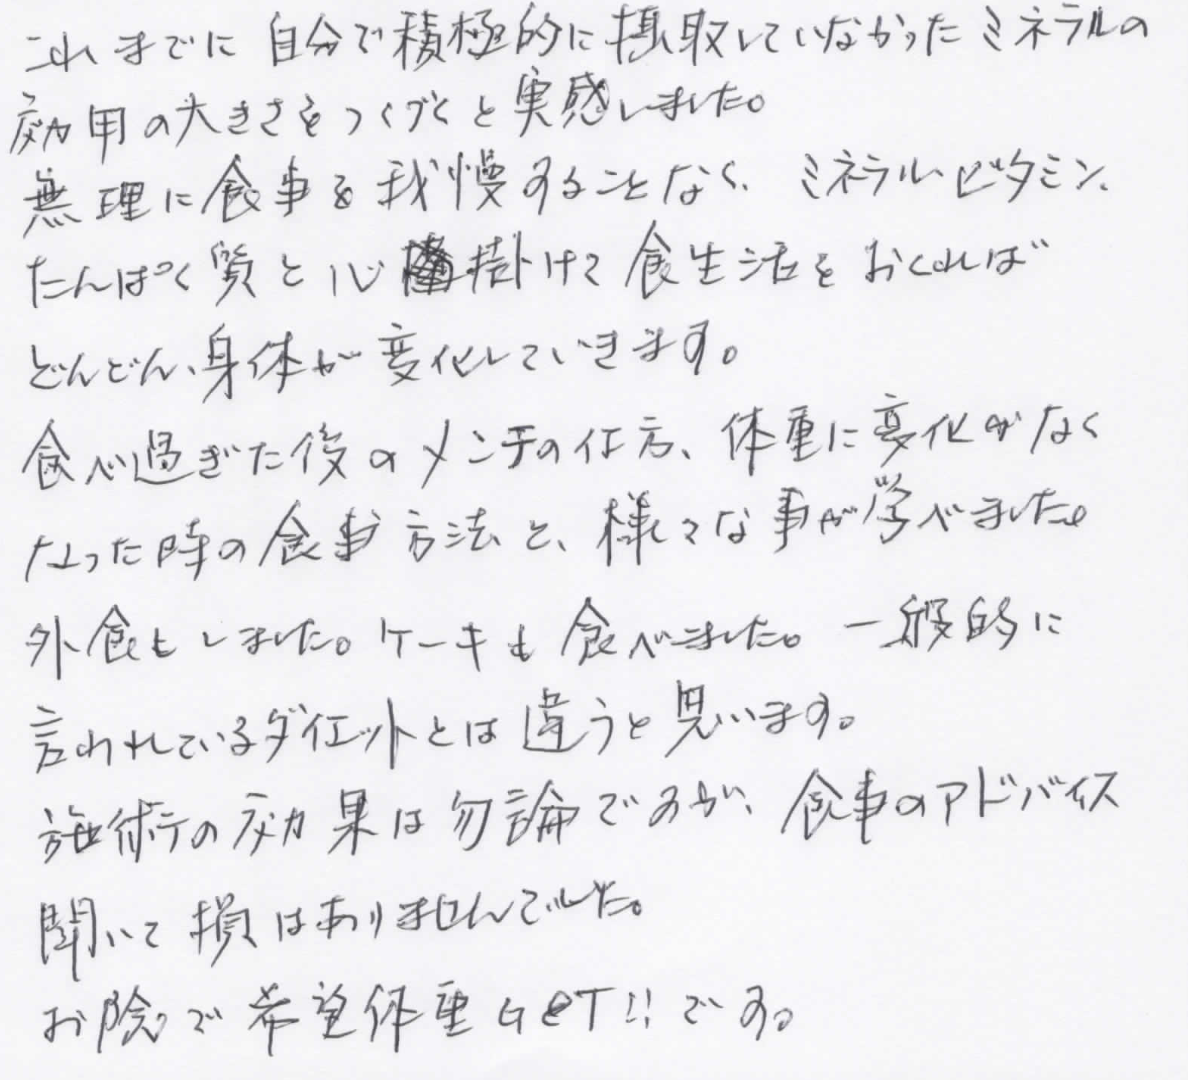 これまでに自分で積極的に摂取していなかったミネラルの
効用の大きさをつくづくと実感しました。
無理に食事を我慢することなく、ミネラル、ビタミン、
たんぱく質と心掛けて食生活をおくれば
どんどん、身体が変化していきます。
食べ過ぎた後のメンテの仕方、体重に変化がなく
なった時の食事方法と、様々な事が学べました。
外食もしました。ケーキも食べました。一般的に
言われているダイエットとは違うと思います。
施術の効果は勿論ですが、食事のアドバイス
聞いて損はありませんでした。
お陰で希望体重GET!!です。